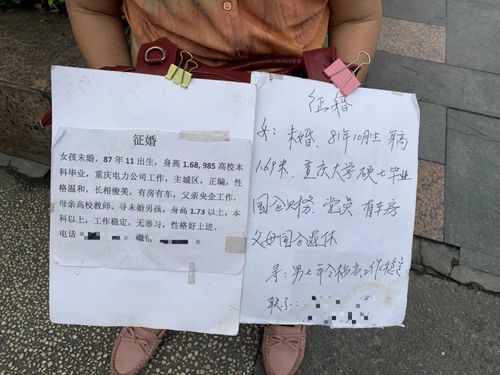 征婚
女孩未婚，87年11出生，身高1.68，985高校本
科毕业，重庆电力公司工作，主城区，正编，性
格温和，长相俊美，有房有车，父亲央企工作，
母亲高校教师。寻未婚男孩，身高1.73以上，本
科以上，工作稳定，无恶习，性格好上进。
电话 微信
征婚
女：未婚，81年10月生 身高
1.69米，重庆大学硕士毕业
国企财务、党员 有车房
父母国企退休
寻：男士年令相当，工作稳定
联了：